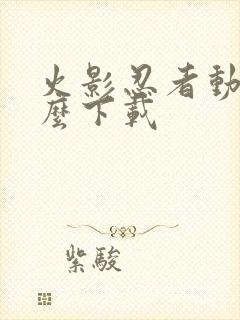 火影忍者動
麼下載
紫駿